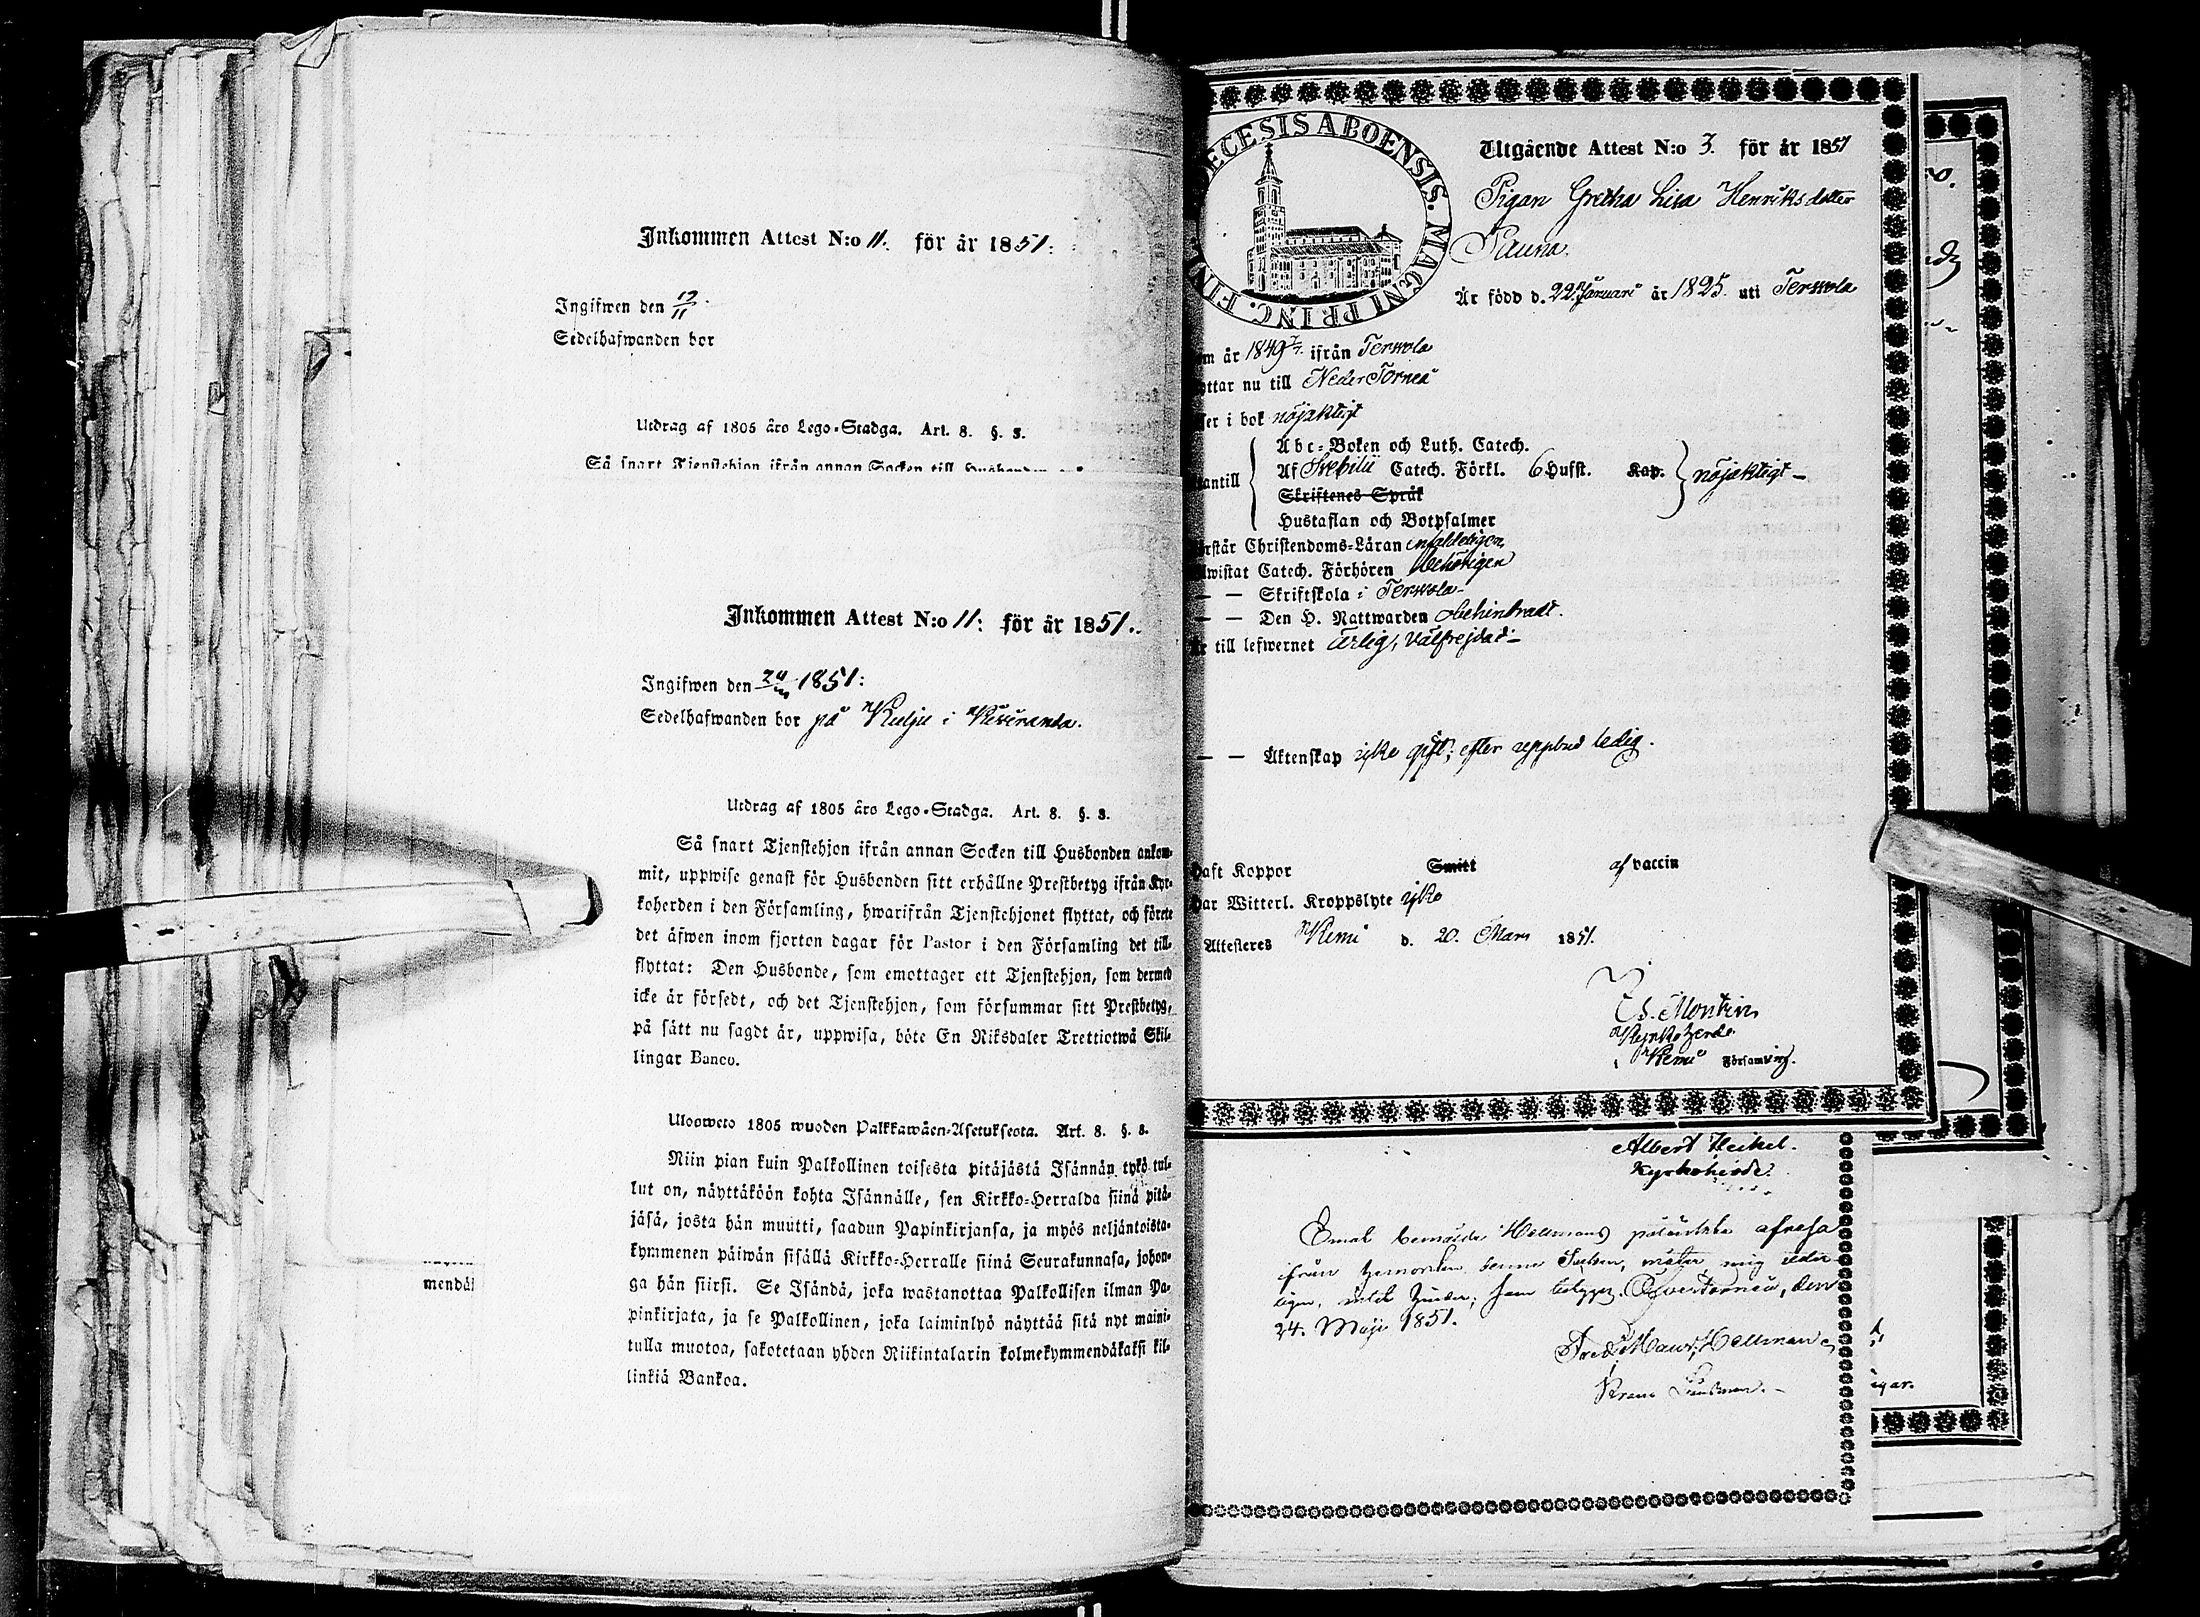 Inkommen Attest N:o 11. för år 1851:
Ingifwen den 19/11.
Sedelhafwanden bor
Utdrag af 1805 års Lego-Stadga. Art. 8. §. 3.
Så snart Tjenstehjon ifrån annan Socken till Husbonden
Inkommen Attest N:o 11: för år 1851.
Ingifwen den 1851:
Sedelhafwanden bor på Kulju i Kesiranda.
Utdrag af 1805 års Lego-Stadga. Art. 8. §. 3.
Så snart Tjenstehjon ifrån annan Socken till Husbonden ankom-
mit, uppwise genast för Husbonden sitt erhållne Prestbetyg ifrån Kyr-
koherden i den Församling, hwarifrån Tjenstehjonet flyttat, och förete
det äfwen inom fjorton dagar för Pastor i den Församling det till-
flyttat: Den Husbonde, som emottager ett Tjenstehjon, som dermed
icke är försedt, och det Tjenstehjon, som försummar sitt Prestbetyg,
på sätt nu sagdt är, uppwisa, böte En Riksdaler Trettiotwå Skil-
lingar Banco.
Ulosweto 1805 wuoden Palkkawäen-Asetuksesta. Art. 8. §. 3.
Niin pian kuin Palkollinen toisesta pitäjästä Isännän tykö tul-
lut on, näyttäköön kohta Isännälle, sen Kirkko-Herralda siinä pitä-
jäsä, josta hän muutti, saadun Papinkirjansa, ja myös neljäntoista-
kymmenen päiwän sisällä Kirkko-Herralle siinä Seurakunnasa, johon-
ga hän siirsi. Se Isändä, joka wastanottaa Palkollisen ilman Pa-
pinkirjata, ja se Palkollinen, joka laiminlyö näyttää sitä nyt maini-
tulla muotoa, sakotetaan yhden Riikintalarin kolmekymmendäkaksi kil-
linkiä Bankoa.
mendäk
ECESIS ABOENSIS. MAGNI PRINC. FIN
Utgående Attest N:o 3. för år 1851
Pigan Gretha Lisa Henriksdotter
Sauna.
Är född d. 22 Januari år 1825 uti Terwola
om år 1849 ifrån Terwola
yttar nu till Neder Torneå
ser i bok nöjaktigt
Abc-Boken och Luth. Catech.
antill Af Svebilii Catech. Förkl. 6 Hufst. Kap. nöjaktigt
Skriftenes Språk
Hustaflan och Botpsalmer
rstår Christendoms-Läran enfaldeligen
wistat Catech. Förhören behörigen
— — Skriftskola i Terwola
— — Den H. Nattwarden obehindradt.
r till lefwernet ärlig, välfrejdad
— — Äktenskap icke gift; efter uppbud ledig.
haft Koppor Smitt af vaccin
har Witterl. Kroppslyte icke
Attesteres Kemi d. 20. Mars 1851.
Es. Montin
Kyrkoherde
i Kemi Församling.
Albert Heikel.
Kyrkoherde.
24. Maji 1851.
Fred. Maur. Hellman
Krono Länsman.
igar.